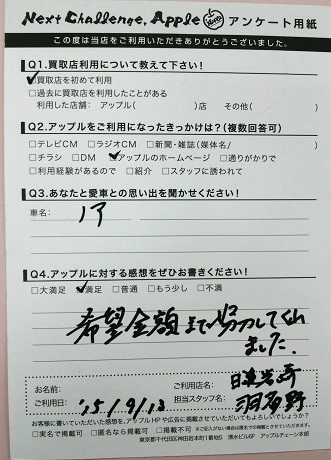 Next Challenge, Apple アンケート用紙
この度は当店をご利用いただきありがとうございました。
Q1.買取店利用について教えて下さい!
☑買取店を初めて利用
□過去に買取店を利用したことがある
利用した店舗: アップル( )店 その他( )
Q2.アップルをご利用になったきっかけは?(複数回答可)
□テレビCM □ラジオCM □新聞・雑誌(媒体名/ )
□チラシ □DM ☑アップルのホームページ □通りがかりで
□利用経験があるので □紹介 □スタッフに誘われて
Q3.あなたと愛車との思い出を聞かせください!
車名: ノア
Q4.アップルに対する感想をぜひお書きください!
□大満足 ☑満足 □普通 □もう少し □不満
希望金額まで努力して
ました.
お名前: ご利用店名:
ご利用日: '15/9/13 担当スタッフ名:
お客様に書いていただいた感想を、アップルHPや広告に掲載させていただいてもよろしいでしょうか?
□実名で掲載可 □匿名なら掲載可 □掲載不可
東京都千代田区神田岩本町1番地5 清水ビル6F アップルチェーン本部